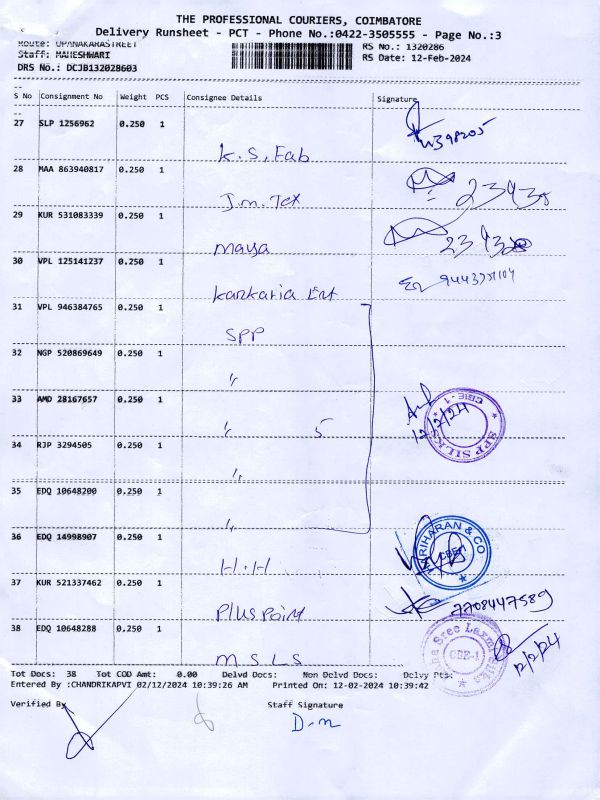 THE PROFESSIONAL COURIERS, COIMBATORE
Delivery Runsheet - PCT - Phone No.:0422-3505555 - Page No.:3
Route: UPANAKARASTREET
RS No.: 1320286
Staff: MAHESHWARI
RS Date: 12-Feb-2024
DRS No.: DCJB132028603
S No Consignment No Weight PCS Consignee Details Signature
27 SLP 1256962 0.250 1
K.S. Fab
28 MAA 863940817 0.250 1
J.m. Tex
29 KUR 531083339 0.250 1
maya
30 VPL 125141237 0.250 1
Kankaria Ent
31 VPL 946384765 0.250 1
SPP
32 NGP 520869649 0.250 1
"
33 AMD 28167657 0.250 1
" 5
12/2/24
SPP SILKS CBE-1
34 RJP 3294505 0.250 1
"
35 EDQ 10648200 0.250 1
"
36 EDQ 14998907 0.250 1
H.H
HARIHARAN & CO
37 KUR 521337462 0.250 1
Plus Point
7708447589
38 EDQ 10648288 0.250 1
M S L S
CBE-1
12/2/24
Tot Docs: 38 Tot COD Amt: 0.00 Delvd Docs: Non Delvd Docs: Delvy Pts:
Entered By :CHANDRIKAPVI 02/12/2024 10:39:26 AM Printed On: 12-02-2024 10:39:42
Verified By
Staff Signature